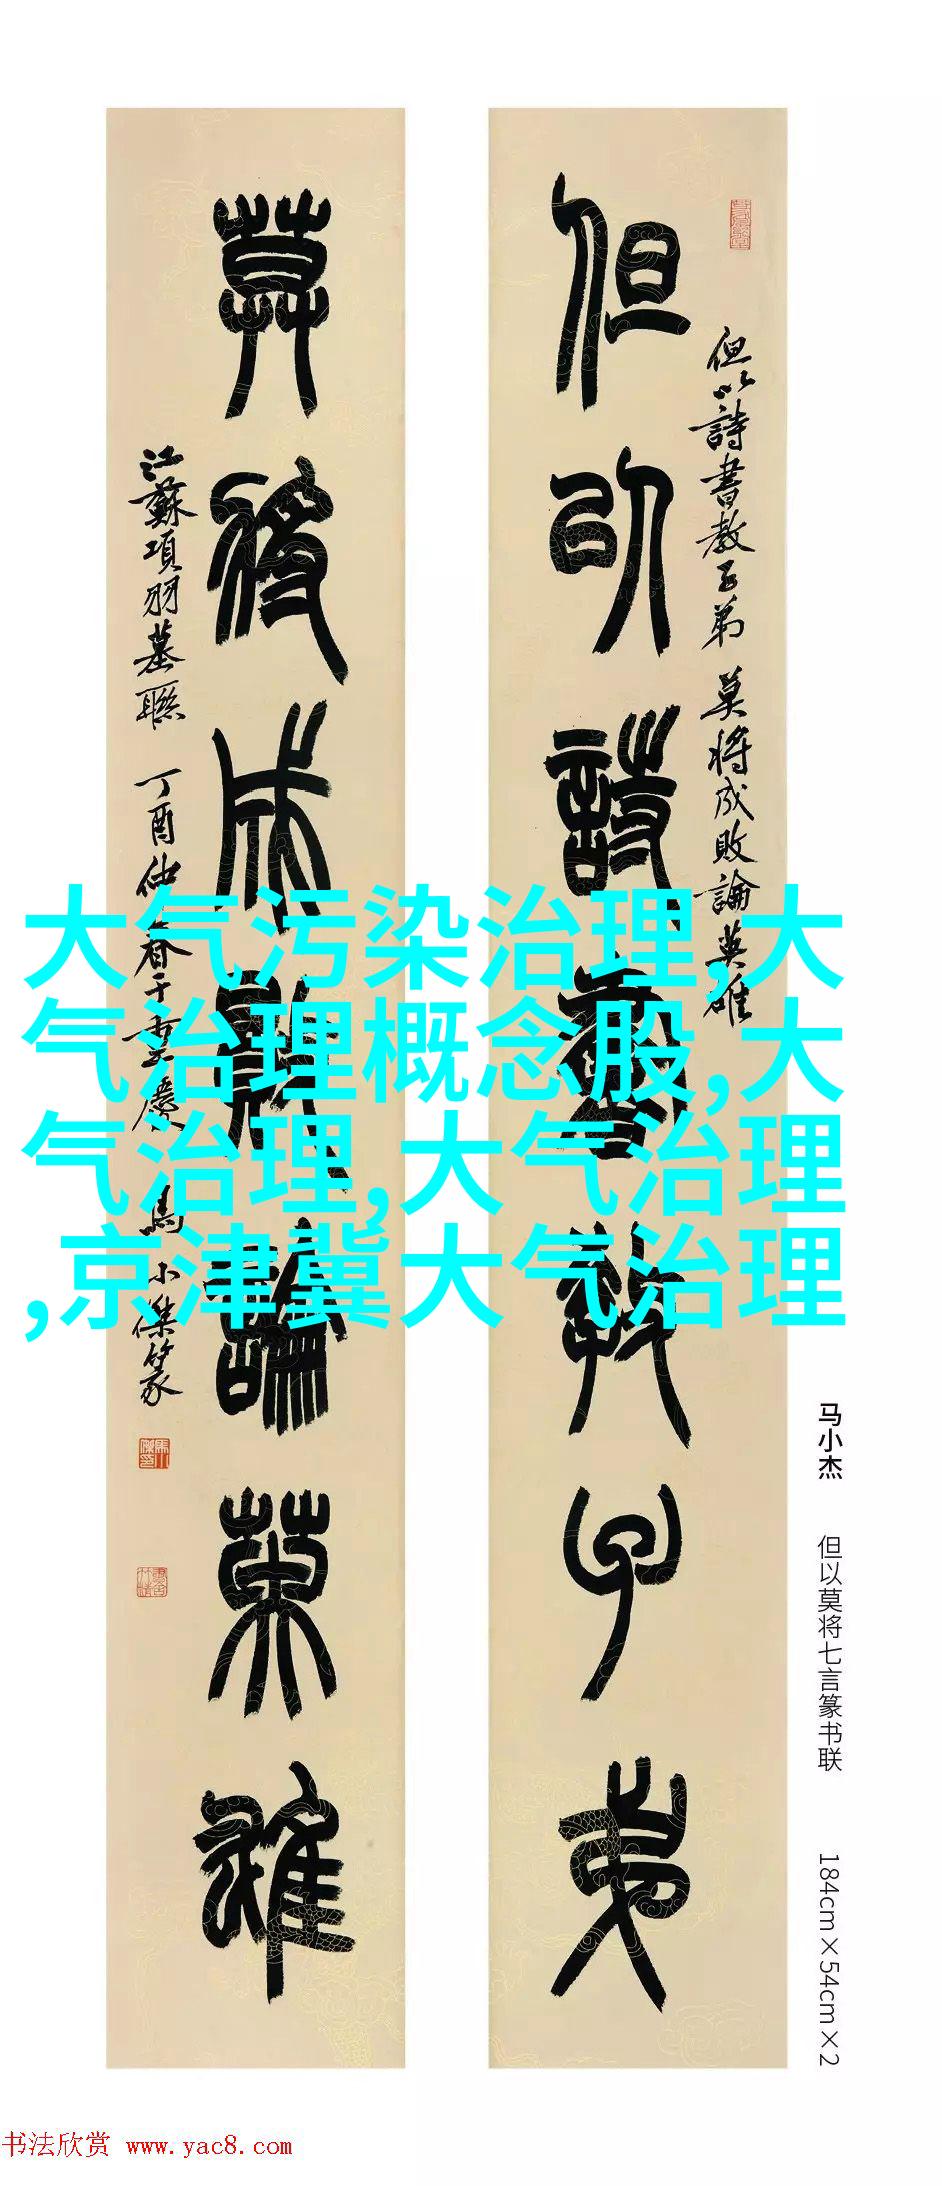 但以詩書教子弟
但以詩書教子弟 莫將成敗論英雄
莫將成敗論英雄
江蘇項羽墓聯 丁酉仲春于重慶 馬小傑篆
大气污染治理,大
气治理概念股,大
气治理,大气治理
,京津冀大气治理
马小杰 但以莫将七言篆书联 184cm×54cm×2
书法欣赏 www.yac8.com